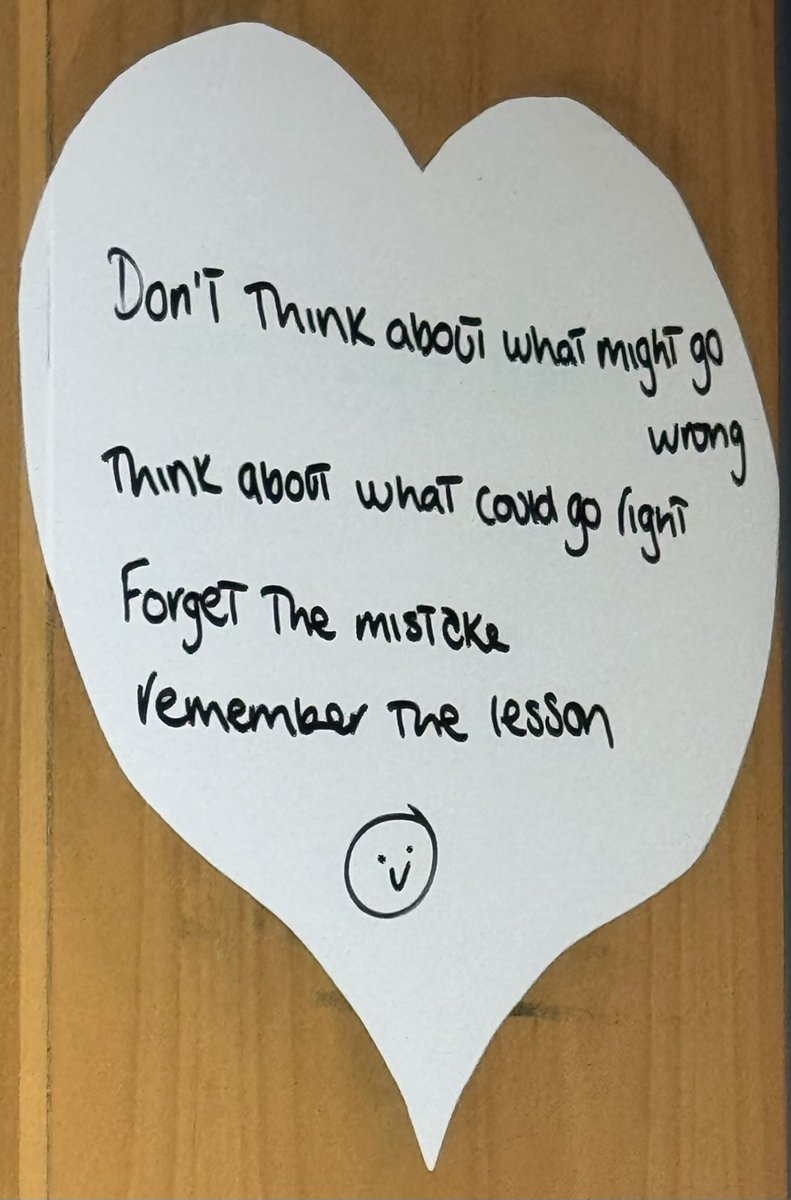 Don't Think about what might go
wrong
Think about what could go right
Forget The mistake
remember The lesson